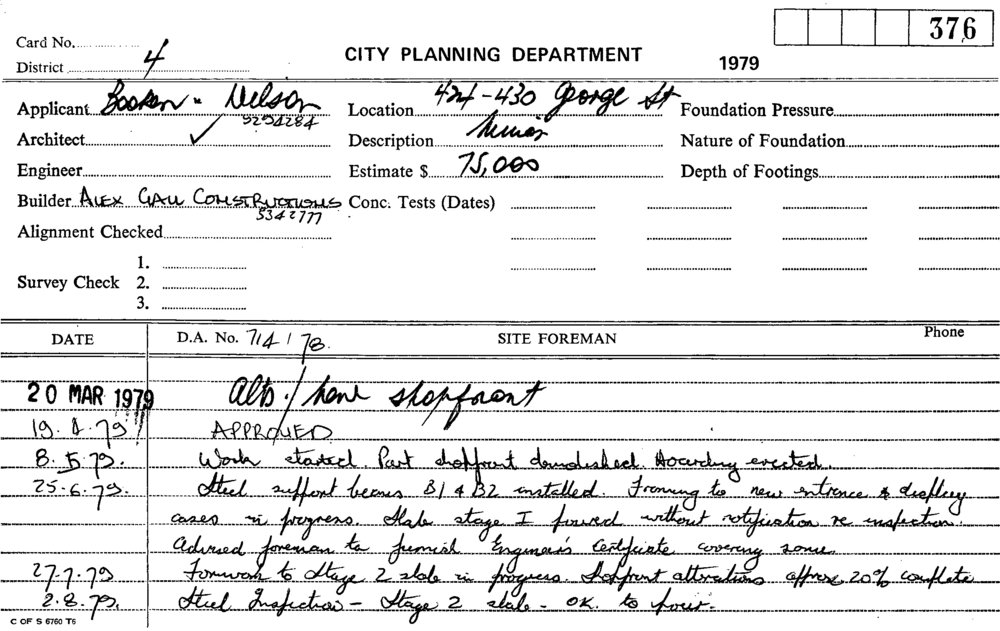 376
Card No.
District 4
CITY PLANNING DEPARTMENT
1979
Applicant Nelson
5294284
Location 424-430 George St
Foundation Pressure
Architect ✓
Description
Nature of Foundation
Engineer
Estimate $ 75,000
Depth of Footings
Builder ALEX GALL CONSTRUCTIONS
5342777
Conc. Tests (Dates)
Alignment Checked
Survey Check
1.
2.
3.
DATE
D.A. No. 714/78.
SITE FOREMAN
Phone
20 MAR 1979 Alts./ shopfront
19.4.79 APPROVED
8.5.79. Work started. Part shopfront demolished. Hoarding erected.
25.6.79. Steel support beams B1 & B2 installed. Framing to new entrance & display
cases in progress. Slab stage I poured without notification re inspection.
Advised foreman to furnish Engineer's Certificate covering same.
27.7.79 Formwork to Stage 2 slab in progress. Shopfront alterations approx 20% complete
2.8.79. Steel Inspection - Stage 2 slab - OK. to pour.
C OF S 6760 T6